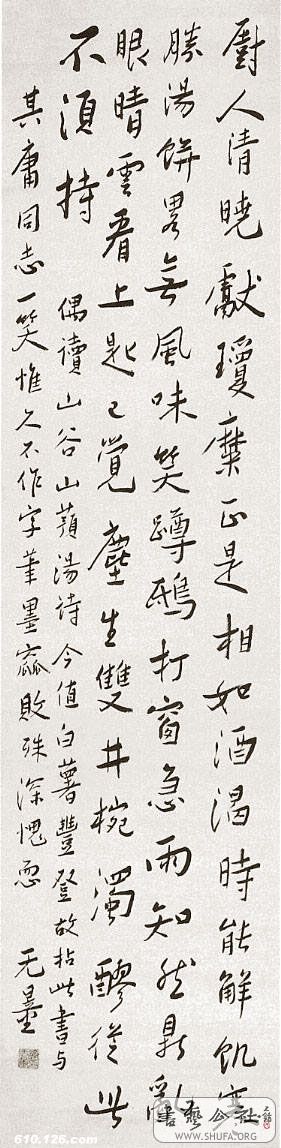 廚人清曉獻瓊糜正是相如酒渴時能解飢寒
勝湯餅畧無風味笑蹲鴟打窗急雨知然鼎亂
眼晴雲看上匙已覺塵生雙井椀濁醪從此
不須持
偶讀山谷山蕷湯詩今值白薯豐登故拈此書與
其庸同志一笑惟久不作字筆墨窳敗殊深愧恧 无量
610.126.com
書藝公社
WWW.SHUFA.ORG